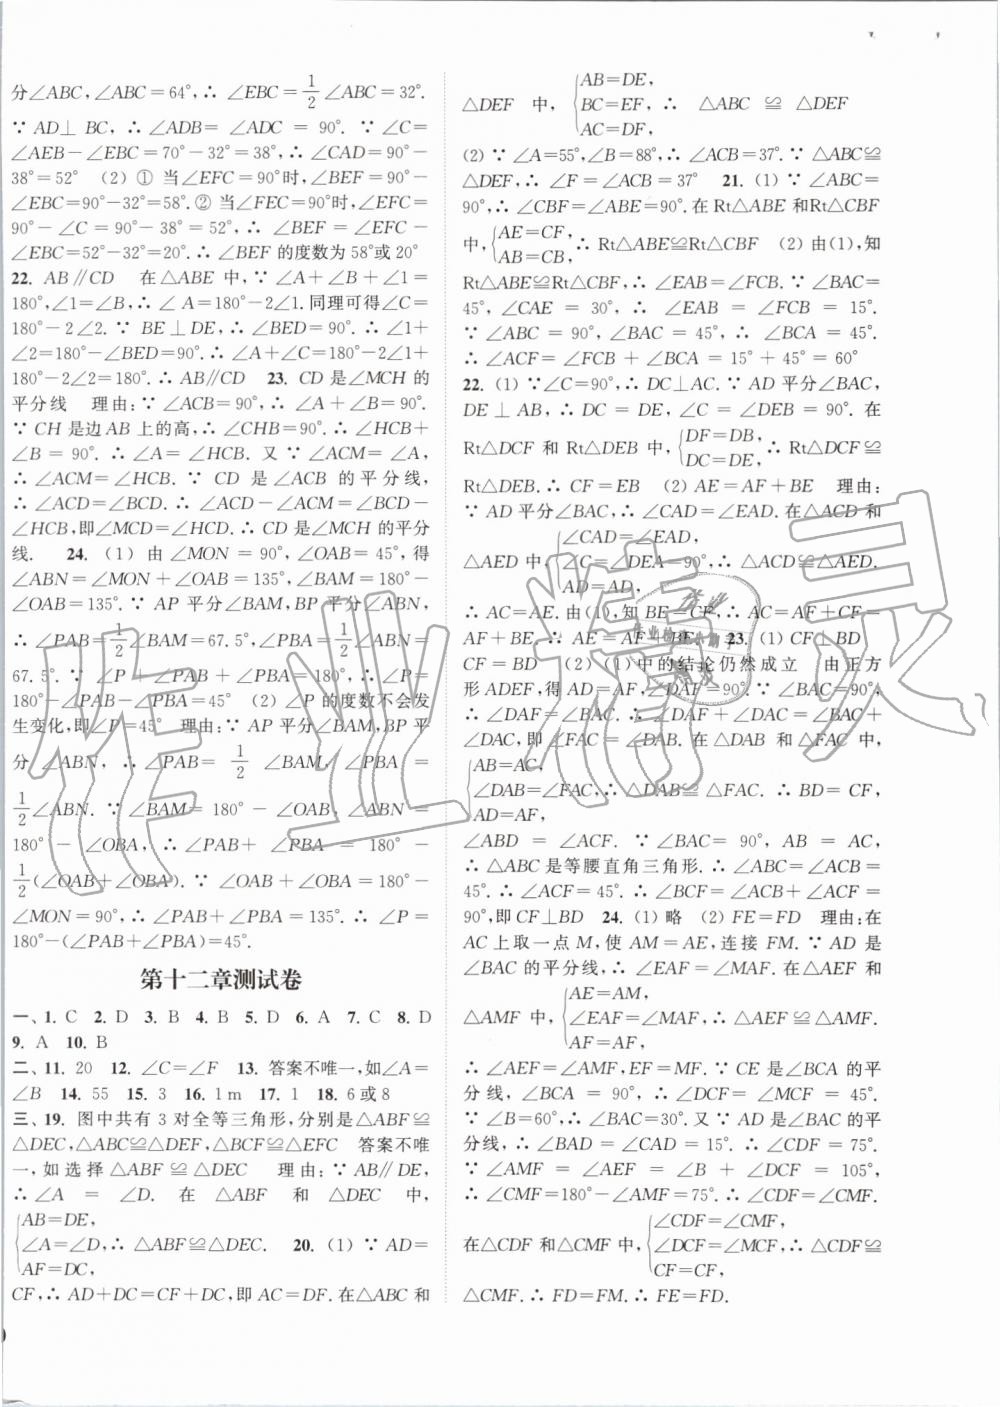 分∠ABC,∠ABC=64°,∴ ∠EBC=1/2∠ABC=32°.
∵ AD⊥BC,∴∠ADB=∠ADC=90°. ∵∠C=
∠AEB-∠EBC=70°-32°=38°,∴∠CAD=90°-
38°=52° (2) ① 当∠EFC=90°时,∠BEF=90°-
∠EBC=90°-32°=58°.② 当∠FEC=90°时,∠EFC=
90°-∠C=90°-38°=52°,∴∠BEF=∠EFC-
∠EBC=52°-32°=20°.∴∠BEF的度数为58°或20°
22. AB∥CD 在△ABE中,∵∠A+∠B+∠1=
180°,∠1=∠B,∴∠A=180°-2∠1.同理可得∠C=
180°-2∠2.∵ BE⊥DE,∴∠BED=90°.∴∠1+
∠2=180°-∠BED=90°.∴∠A+∠C=180°-2∠1+
180°-2∠2=180°.∴AB∥CD 23. CD是∠MCH的
平分线 理由:∵∠ACB=90°,∴∠A+∠B=90°.
∵CH是边AB上的高,∴∠CHB=90°.∴∠HCB+
∠B=90°.∴∠A=∠HCB.又∵∠ACM=∠A,
∴∠ACM=∠HCB.∵ CD 是∠ACB 的平分线,
∴∠ACD=∠BCD.∴∠ACD-∠ACM=∠BCD-
∠HCB,即∠MCD=∠HCD.∴CD是∠MCH的平分
线. 24. (1) 由∠MON=90°,∠OAB=45°,得
∠ABN=∠MON+∠OAB=135°,∠BAM=180°-
∠OAB=135°.∵ AP平分∠BAM,BP平分∠ABN,
∴∠PAB=1/2∠BAM=67.5°,∠PBA=1/2∠ABN=
67.5°.∵∠P+∠PAB+∠PBA=180°,∴∠P=
180°-∠PAB-∠PBA=45° (2) ∠P的度数不会发
生变化,即∠P=45° 理由:∵ AP平分∠BAM,BP平
分∠ABN,∴∠PAB=1/2∠BAM,∠PBA=
1/2∠ABN.∵∠BAM=180°-∠OAB,∠ABN=
180°-∠OBA,∴∠PAB+∠PBA=180°-
1/2(∠OAB+∠OBA).∵∠OAB+∠OBA=180°-
∠MON=90°,∴∠PAB+∠PBA=135°.∴∠P=
180°-(∠PAB+∠PBA)=45°.
第十二章测试卷
一、1. C 2. D 3. B 4. B 5. D 6. A 7. C 8. D
9. A 10. B
二、11. 20 12. ∠C=∠F 13. 答案不唯一,如∠A=
∠B 14. 55 15. 3 16. 1 m 17. 1 18. 6或8
三、19. 图中共有3对全等三角形,分别是△ABF≌
△DEC,△ABC≌△DEF,△BCF≌△EFC 答案不唯
一,如选择△ABF≌△DEC 理由:∵AB∥DE,
∴∠A=∠D. 在△ABF和△DEC中,
{AB=DE,
∠A=∠D,∴△ABF≌△DEC. 20. (1) ∵ AD=
AF=DC,
CF,∴AD+DC=CF+DC,即AC=DF.在△ABC和
{AB=DE,
△DEF中,BC=EF,∴ △ABC≌△DEF
AC=DF,
(2) ∵∠A=55°,∠B=88°,∴∠ACB=37°.∵△ABC≌
△DEF,∴∠F=∠ACB=37° 21. (1) ∵∠ABC=
90°,∴∠CBF=∠ABE=90°.在Rt△ABE和Rt△CBF
中,{AE=CF, AB=CB,∴ Rt△ABE≌Rt△CBF (2) 由(1),知
Rt△ABE≌Rt△CBF,∴∠EAB=∠FCB.∵∠BAC=
45°,∠CAE=30°,∴∠EAB=∠FCB=15°.
∵∠ABC=90°,∠BAC=45°,∴∠BCA=45°.
∴∠ACF=∠FCB+∠BCA=15°+45°=60°
22. (1) ∵∠C=90°,∴DC⊥AC.∵AD平分∠BAC,
DE⊥AB,∴DC=DE,∠C=∠DEB=90°.在
Rt△DCF和Rt△DEB中,{DF=DB, DC=DE,∴ Rt△DCF≌
Rt△DEB.∴CF=EB (2) AE=AF+BE 理由:
∵AD平分∠BAC,∴∠CAD=∠EAD.在△ACD和
{∠CAD=∠EAD,
△AED中,∠C=∠DEA=90°,∴△ACD≌△AED.
AD=AD,
∴AC=AE.由(1),知BE=CF,∴AC=AF+CF=
AF+BE.∴AE=AF+BE 23. (1) CF⊥BD
CF=BD (2) (1)中的结论仍然成立 由正方
形ADEF,得AD=AF,∠DAF=90°.∵∠BAC=90°,
∴∠DAF=∠BAC.∴∠DAF+∠DAC=∠BAC+
∠DAC,即∠FAC=∠DAB.在△DAB和△FAC中,
{AB=AC,
∠DAB=∠FAC,∴△DAB≌△FAC.∴BD=CF,
AD=AF,
∠ABD=∠ACF.∵∠BAC=90°,AB=AC,
∴△ABC是等腰直角三角形.∴∠ABC=∠ACB=
45°.∴∠ACF=45°.∴∠BCF=∠ACB+∠ACF=
90°,即CF⊥BD 24. (1) 略 (2) FE=FD 理由:在
AC上取一点M,使AM=AE,连接FM.∵AD是
∠BAC的平分线,∴∠EAF=∠MAF.在△AEF和
{AE=AM,
△AMF中,∠EAF=∠MAF,∴△AEF≌△AMF.
AF=AF,
∴∠AEF=∠AMF,EF=MF.∵CE是∠BCA的平
分线,∠BCA=90°,∴∠DCF=∠MCF=45°.
∵∠B=60°,∴∠BAC=30°.又∵AD是∠BAC的平
分线,∴∠BAD=∠CAD=15°.∴∠CDF=75°.
∵∠AMF=∠AEF=∠B+∠DCF=105°,
∴∠CMF=180°-∠AMF=75°.∴∠CDF=∠CMF.
{∠CDF=∠CMF,
在△CDF和△CMF中,∠DCF=∠MCF,∴△CDF≌
CF=CF,
△CMF.∴FD=FM.∴FE=FD.
作业精灵